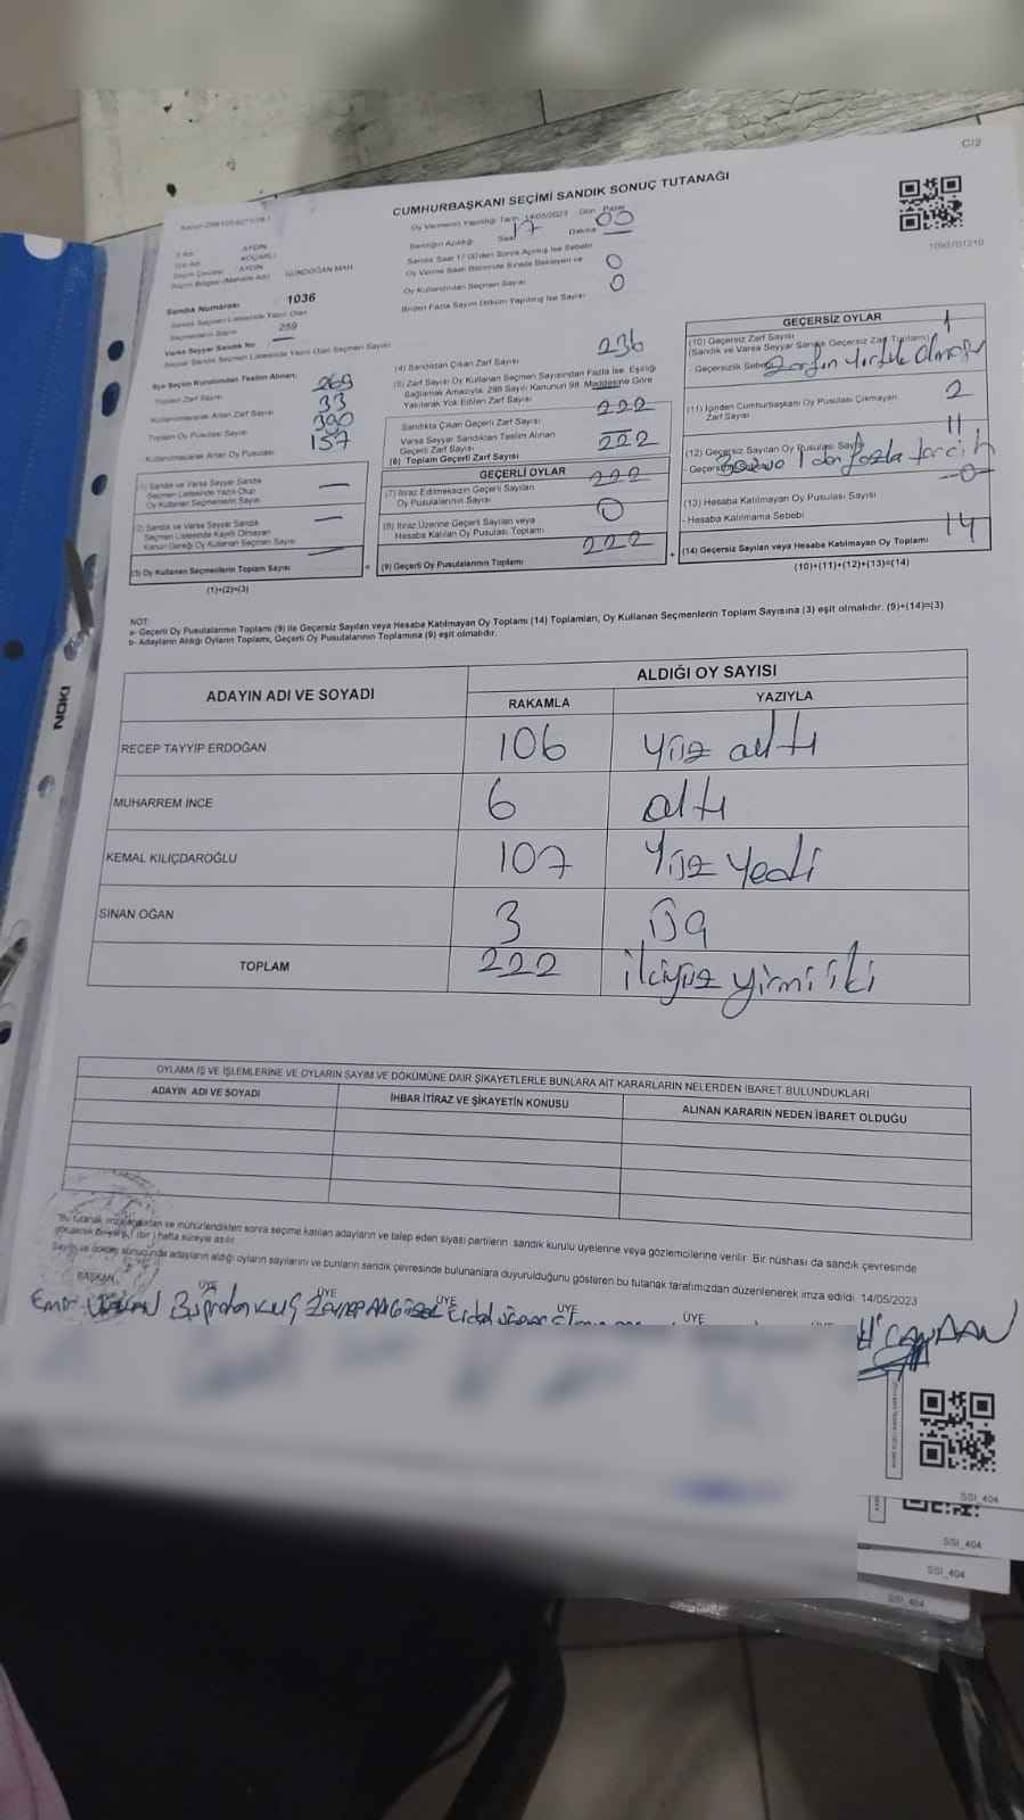 C/2
CUMHURBAŞKANI SEÇİMİ SANDIK SONUÇ TUTANAĞI
Oy Vermenin Yapıldığı Tarih: 14/05/2023 Gün: Pazar
Sandığın Açıldığı Saat 17 Dakika 00
AYDIN
KOÇARLI
AYDIN
GÜNDOĞAN MAH.
Sandık Numarası 1036
259
Sandık Saat 17:00'den Sonra Açılmış İse Sebebi
0
Oy Kullandırılan Seçmen Sayısı
Birden Fazla Sayım Döküm Yapılmış İse Sayısı 0
İlçe Seçim Kurulundan Teslim Alınan;
Toplam Zarf Sayısı 269
Kullanılmayarak Artan Zarf Sayısı 33
Toplam Oy Pusulası Sayısı 390
Kullanılmayarak Artan Oy Pusulası 157
(1) Sandık ve Varsa Seyyar Sandık Seçmen Listesinde Yazılı Olup Oy Kullanan Seçmenlerin Sayısı —
(2) Sandık ve Varsa Seyyar Sandık Seçmen Listesinde Kayıtlı Olmayan Kanun Gereği Oy Kullanan Seçmen Sayısı —
(3) Oy Kullanan Seçmenlerin Toplam Sayısı —
(1)+(2)=(3)
(4) Sandıktan Çıkan Zarf Sayısı 236
(5) Zarf Sayısı Oy Kullanan Seçmen Sayısından Fazla İse, Eşitliği
Sağlamak Amacıyla, 298 Sayılı Kanunun 98. Maddesine Göre
Yakılarak Yok Edilen Zarf Sayısı
Sandıkta Çıkan Geçerli Zarf Sayısı 222
Varsa Seyyar Sandıktan Teslim Alınan
Geçerli Zarf Sayısı
(6) Toplam Geçerli Zarf Sayısı 222
GEÇERLİ OYLAR
(7) İtiraz Edilmeksizin Geçerli Sayılan
Oy Pusulalarının Sayısı 222
(8) İtiraz Üzerine Geçerli Sayılan veya
Hesaba Katılan Oy Pusulası Toplamı 0
(9) Geçerli Oy Pusulalarının Toplamı 222
GEÇERSİZ OYLAR
(10) Geçersiz Zarf Sayısı 1
(Sandık ve Varsa Seyyar Sandık Geçersiz Zarf Toplamı)
Geçersizlik Sebebi Zarfın yırtık olması
(11) İçinden Cumhurbaşkanı Oy Pusulası Çıkmayan
Zarf Sayısı 2
(12) Geçersiz Sayılan Oy Pusulası Sayısı 11
1 den fazla tercih
(13) Hesaba Katılmayan Oy Pusulası Sayısı -0-
- Hesaba Katılmama Sebebi
(14) Geçersiz Sayılan veya Hesaba Katılmayan Oy Toplamı 14
(10)+(11)+(12)+(13)=(14)
NOT:
a- Geçerli Oy Pusulalarının Toplamı (9) ile Geçersiz Sayılan veya Hesaba Katılmayan Oy Toplamı (14) Toplamları, Oy Kullanan Seçmenlerin Toplam Sayısına (3) eşit olmalıdır. (9)+(14)=(3)
b- Adayların Aldığı Oyların Toplamı, Geçerli Oy Pusulalarının Toplamına (9) eşit olmalıdır.
ADAYIN ADI VE SOYADI
ALDIĞI OY SAYISI
RAKAMLA YAZIYLA
RECEP TAYYİP ERDOĞAN 106 Yüz altı
MUHARREM İNCE 6 altı
KEMAL KILIÇDAROĞLU 107 Yüz Yedi
SİNAN OĞAN 3 Üç
TOPLAM 222 ikiyüz yirmi iki
OYLAMA İŞ VE İŞLEMLERİNE VE OYLARIN SAYIM VE DÖKÜMÜNE DAİR ŞİKAYETLERLE BUNLARA AİT KARARLARIN NELERDEN İBARET BULUNDUKLARI
ADAYIN ADI VE SOYADI
İHBAR İTİRAZ VE ŞİKAYETİN KONUSU
ALINAN KARARIN NEDEN İBARET OLDUĞU
Bu tutanak imzalandıktan ve mühürlendikten sonra seçime katılan adayların ve talep eden siyasi partilerin sandık kurulu üyelerine veya gözlemcilerine verilir. Bir nüshası da sandık çevresinde
Sayım ve döküm sonucunda adayların aldığı oyların sayılarını ve bunların sandık çevresinde bulunanlara duyurulduğunu gösteren bu tutanak tarafımızdan düzenlenerek imza edildi. 14/05/2023
BAŞKAN ÜYE ÜYE ÜYE ÜYE ÜYE
DION
SSI_404
SSI_404
SSI_404
SSI_404